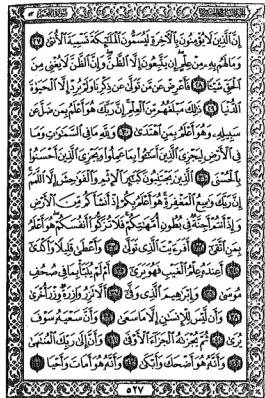 إِنَّ الَّذِينَ لَا يُؤْمِنُونَ بِالْآخِرَةِ لَيُسَمُّونَ الْمَلَائِكَةَ تَسْمِيَةَ الْأُنثَىٰ ٢٧
وَمَا لَهُم بِهِ مِنْ عِلْمٍ إِن يَتَّبِعُونَ إِلَّا الظَّنَّ وَإِنَّ الظَّنَّ لَا يُغْنِي مِنَ
الْحَقِّ شَيْئًا ٢٨ فَأَعْرِضْ عَن مَّن تَوَلَّىٰ عَن ذِكْرِنَا وَلَمْ يُرِدْ إِلَّا الْحَيَاةَ
الدُّنْيَا ٢٩ ذَٰلِكَ مَبْلَغُهُم مِّنَ الْعِلْمِ إِنَّ رَبَّكَ هُوَ أَعْلَمُ بِمَن ضَلَّ عَن
سَبِيلِهِ وَهُوَ أَعْلَمُ بِمَنِ اهْتَدَىٰ ٣٠ وَلِلَّهِ مَا فِي السَّمَاوَاتِ وَمَا
فِي الْأَرْضِ لِيَجْزِيَ الَّذِينَ أَسَاءُوا بِمَا عَمِلُوا وَيَجْزِيَ الَّذِينَ أَحْسَنُوا
بِالْحُسْنَى ٣١ الَّذِينَ يَجْتَنِبُونَ كَبَائِرَ الْإِثْمِ وَالْفَوَاحِشَ إِلَّا اللَّمَمَ
إِنَّ رَبَّكَ وَاسِعُ الْمَغْفِرَةِ هُوَ أَعْلَمُ بِكُمْ إِذْ أَنشَأَكُم مِّنَ الْأَرْضِ
وَإِذْ أَنتُمْ أَجِنَّةٌ فِي بُطُونِ أُمَّهَاتِكُمْ فَلَا تُزَكُّوا أَنفُسَكُمْ هُوَ أَعْلَمُ
بِمَنِ اتَّقَىٰ ٣٢ أَفَرَأَيْتَ الَّذِي تَوَلَّىٰ ٣٣ وَأَعْطَىٰ قَلِيلًا وَأَكْدَىٰ
٣٤ أَعِندَهُ عِلْمُ الْغَيْبِ فَهُوَ يَرَىٰ ٣٥ أَمْ لَمْ يُنَبَّأْ بِمَا فِي صُحُفِ
مُوسَىٰ ٣٦ وَإِبْرَاهِيمَ الَّذِي وَفَّىٰ ٣٧ أَلَّا تَزِرُ وَازِرَةٌ وِزْرَ أُخْرَىٰ
٣٨ وَأَن لَّيْسَ لِلْإِنسَانِ إِلَّا مَا سَعَىٰ ٣٩ وَأَنَّ سَعْيَهُ سَوْفَ
يُرَىٰ ٤٠ ثُمَّ يُجْزَاهُ الْجَزَاءَ الْأَوْفَىٰ ٤١ وَأَنَّ إِلَىٰ رَبِّكَ الْمُنتَهَىٰ
٤٢ وَأَنَّهُ هُوَ أَضْحَكَ وَأَبْكَىٰ ٤٣ وَأَنَّهُ هُوَ أَمَاتَ وَأَحْيَا ٤٤
٥٢٧